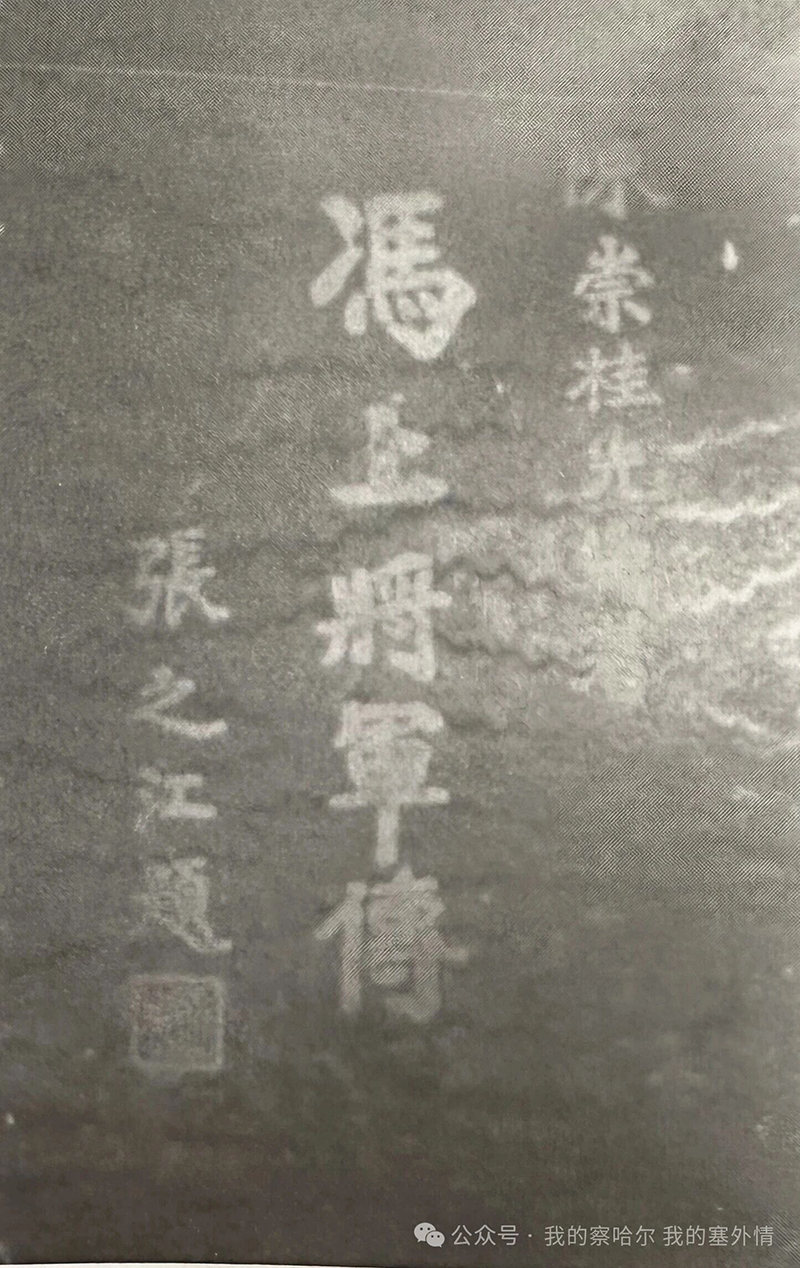 崇桂先
馮上將軍傳
張之江題
公众号·我的察哈尔 我的塞外情